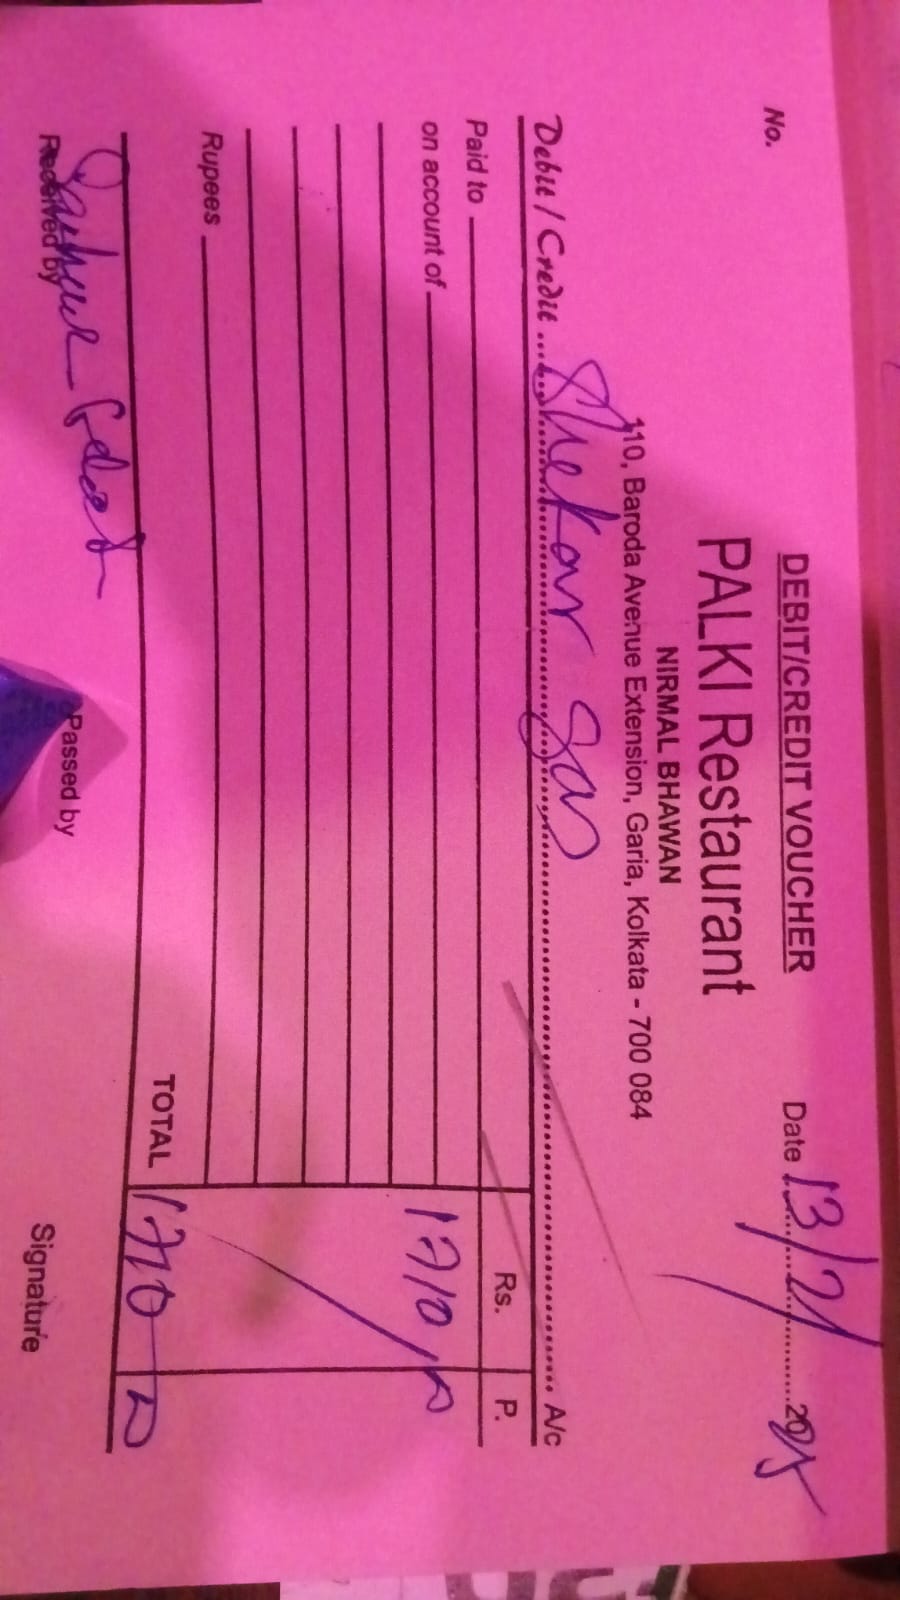 DEBIT/CREDIT VOUCHER
No. Date 13/2/ 2025
PALKI Restaurant
NIRMAL BHAWAN
110, Baroda Avenue Extension, Garia, Kolkata - 700 084
Debit / Credit Shekar Gas A/c
Paid to Rs. P.
on account of 1710/-
Rupees
TOTAL 1710
Received by Passed by Signature